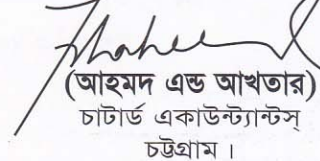 (আহমদ এন্ড আখতার)
চাটার্ড একাউন্ট্যান্টস্
চট্টগ্রাম ।